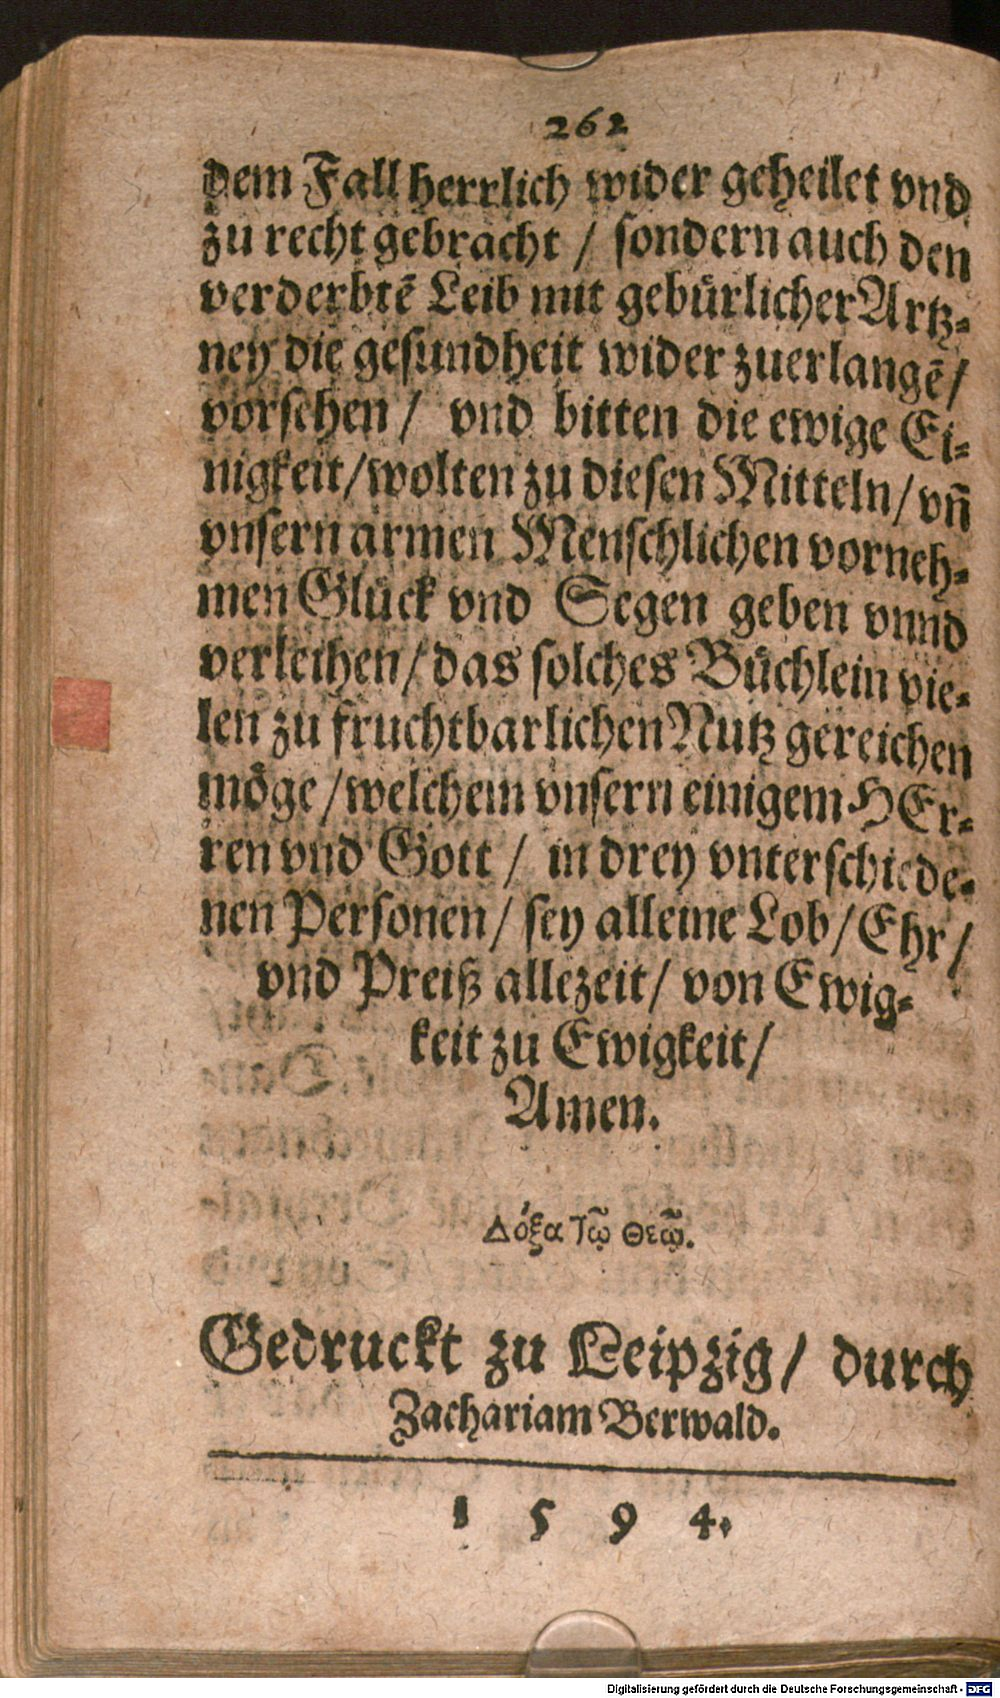 262
dem Fall herrlich wider geheilet vnd
zu recht gebracht / sondern auch den
verderbtẽ Leib mit gebuͤrlicher Artz-
ney die gesundheit wider zuerlangẽ /
vorsehen / vnd bitten die ewige Ei-
nigkeit / wolten zu diesen Mitteln / vñ
vnsern armen Menschlichen vorneh-
men Gluͤck vnd Segen geben vnnd
verleihen / das solches Buͤchlein vie-
len zu fruchtbarlichen Nutz gereichen
moͤge / welchem vnsern einigem HEr-
ren vnd Gott / in drey vnterschiede-
nen Personen / sey alleine Lob / Ehr /
vnd Preiß allezeit / von Ewig-
keit zu Ewigkeit /
Amen.
Δόξα Τῷ Θεῷ.
Gedruckt zu Leipzig / durch
Zachariam Berwald.
1 5 9 4.
Digitalisierung gefördert durch die Deutsche Forschungsgemeinschaft - DFG